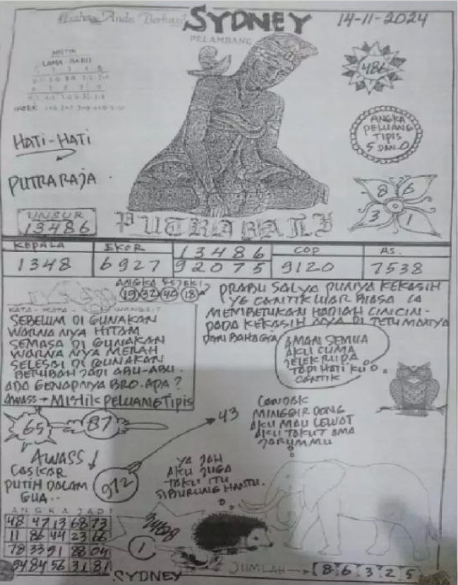 SYDNEY
14-11-2024
PELAMBANG
MISTIK
LAMA - BARU
486
HATI-HATI
PUTRA RAJA
ANGKA
PELUANG
TIPIS
5 DAN 0
8 6
3 1
UNSUR
13486
KEPALA EKOR 13486 COP AS.
1348 6927 92075 9120 7538
19 32 40 18
SEBELUM DI GUNAKAN
WARNA NYA HITAM
SEMASA DI GUNAKAN
WARNA NYA MERAH
SELESAI DI GUNAKAN
BERUBAH JADI ABU-ABU.
ADA GENAPNYA BRO. APA?
AWASS → MISTIK PELUANG TIPIS
PRABU SALYA PUNYA KEKASIH
YG CANTIK LUAR BIASA IA
MEMBERIKAN HADIAH CINCIN
PADA KEKASIH NYA DI
DAN BAHAGIA
AMAN SEMUA
AKU CUMA
JELEK RUPA
TAPI HATI KU
CANTIK
65
87
43
AWASS
972
PUTIH DALAM
GUA..
MINGGIR DONG
AKU MAU LEWAT
AKU TAKUT AMA
JARUMMU
YA JAH
AKU JUGA
TAKUT ITU
SI BURUNG HANTU.
ANGKA JADI
48 47 13 68 73
11 86 44 23 66
78 33 91 28 04
94 84 56 31 81
1
JUMLAH → [8 6 3 2 5]
SYDNEY